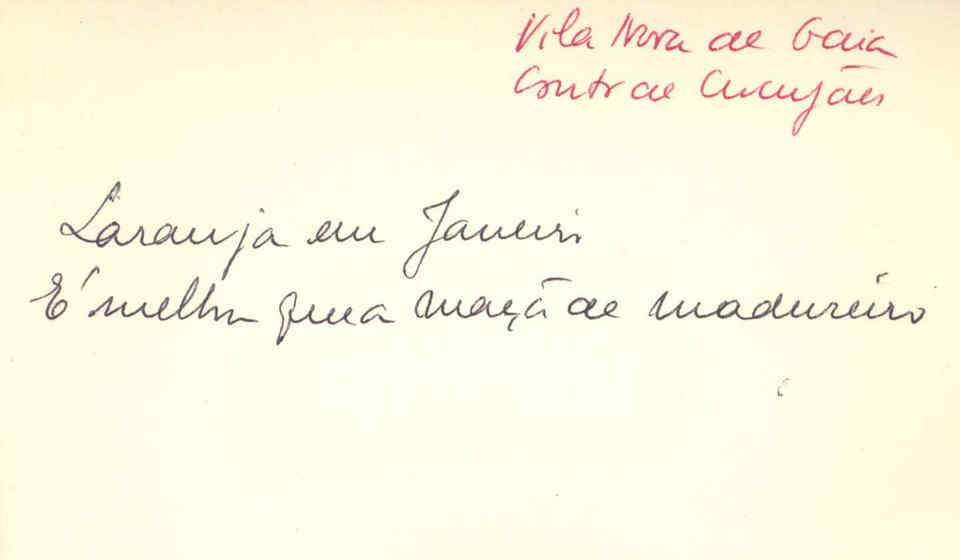 Vila Nova de Gaia
Couto de Cucujães
Laranja em Janeiro
É melhor que a maçã de madureiro